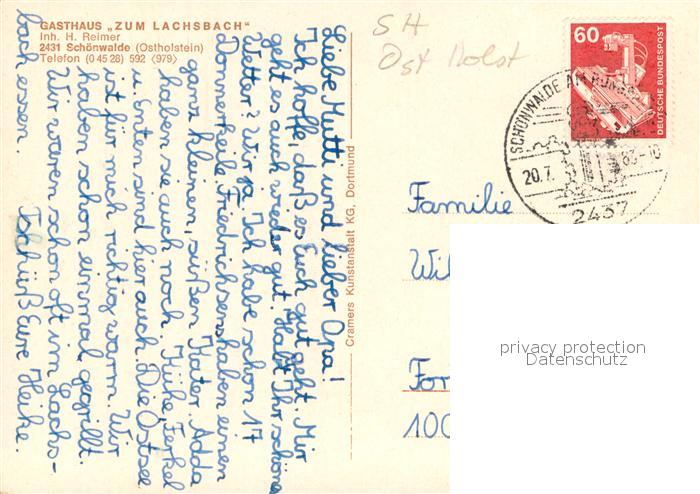 GASTHAUS „ZUM LACHSBACH"
Inh. H. Reimer
2431 Schönwalde (Ostholstein)
Telefon (0 45 28) 592 (979)
Liebe Mutti und lieber Opa!
Ich hoffe, daß es Euch gut geht. Mir
geht es auch wieder gut. Habt Ihr schönes
Wetter? Wir ja. Ich habe schon 17
Donnerkeile. Friedrichsens haben einen
ganz kleinen, süßen Kater. Adda
haben sie auch noch. Kühe, Ferkel
u. Enten sind hier auch. Die Ostsee
ist für mich richtig warm. Wir
haben schon einmal gegrillt.
Wir waren schon oft im Lachs-
bach essen.
Tschüß Eure Heike.
Cramers Kunstanstalt KG, Dortmund
SH
Ost Holst
60
DEUTSCHE BUNDESPOST
SCHÖNWALDE AM BUNGSBERG
20.7. 83-10
2437
Familie
Wil
For
100
privacy protection
Datenschutz